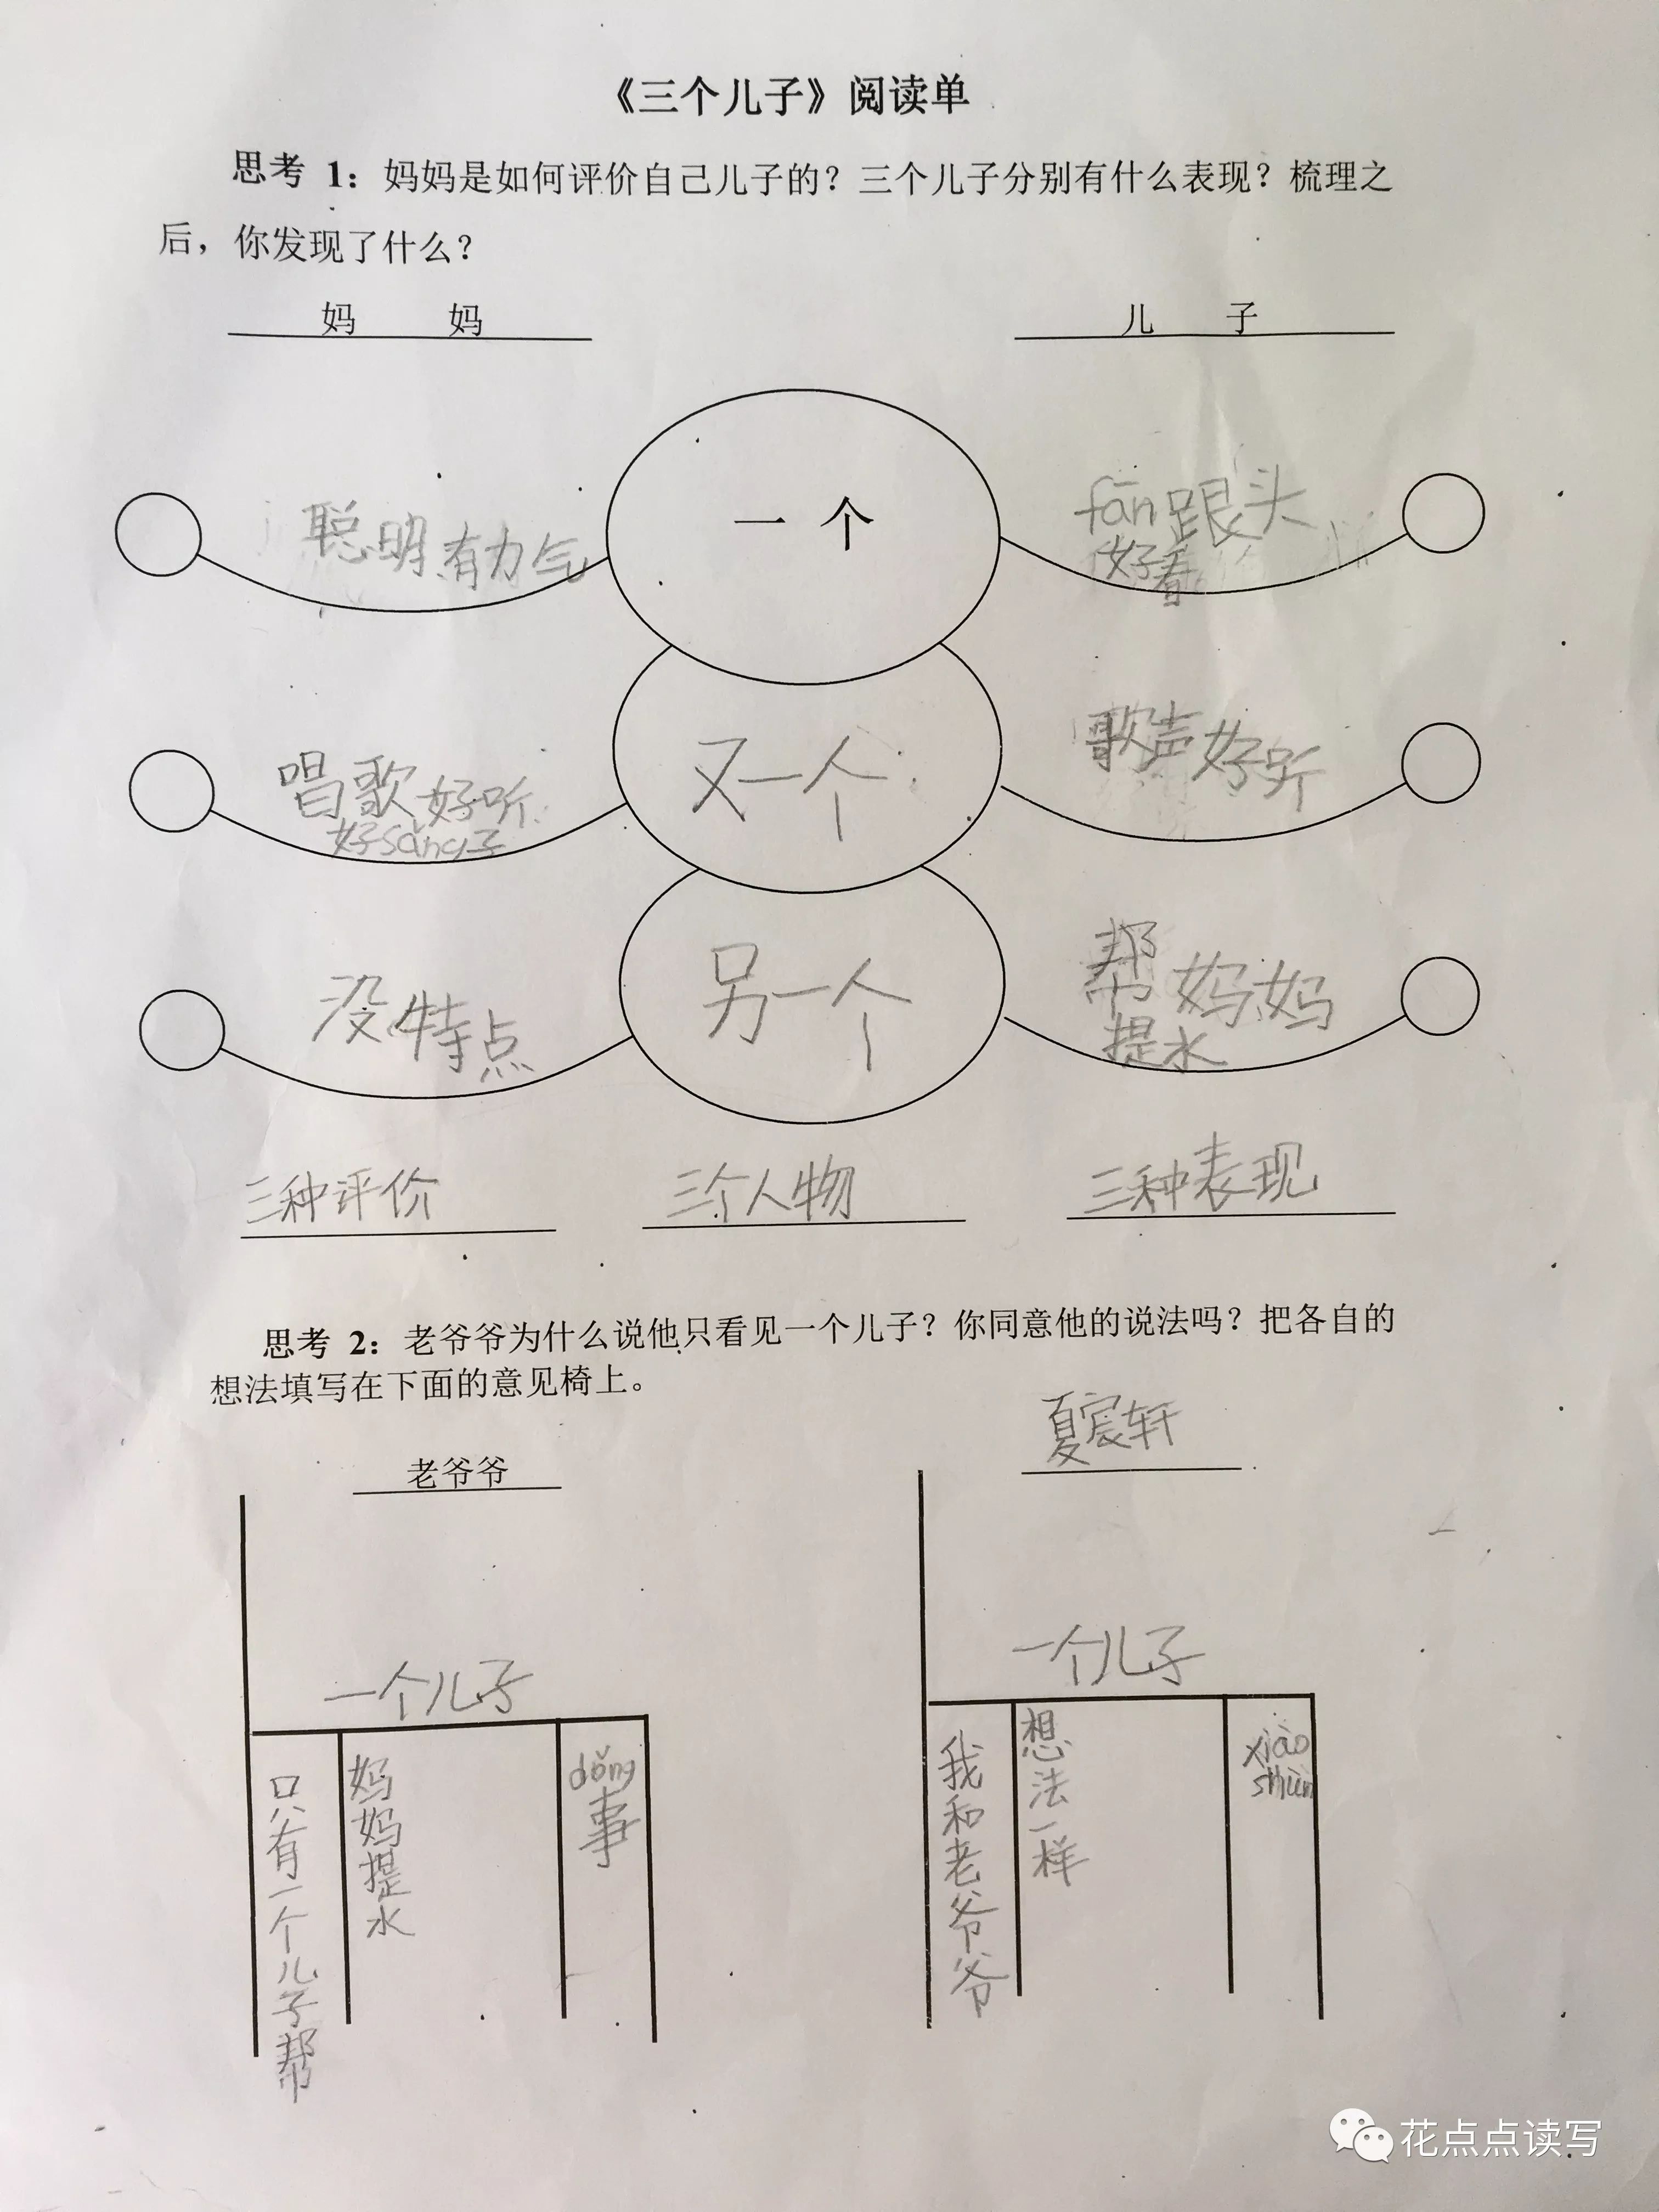 《三个儿子》阅读单
思考 1：妈妈是如何评价自己儿子的？三个儿子分别有什么表现？梳理之
后，你发现了什么？
妈 妈
儿 子
聪明有力气
一 个
fān跟头
好看
唱歌好听
好sǎng子
又一个
歌声好听
没特点
另一个
帮妈妈
提水
三种评价
三个人物
三种表现
思考 2：老爷爷为什么说他只看见一个儿子？你同意他的说法吗？把各自的
想法填写在下面的意见椅上。
老爷爷
夏宸轩
一个儿子
只有一个儿子帮
妈妈提水
dǒng
事
一个儿子
我和老爷爷
想法一样
xiào
shùn
花点点读写